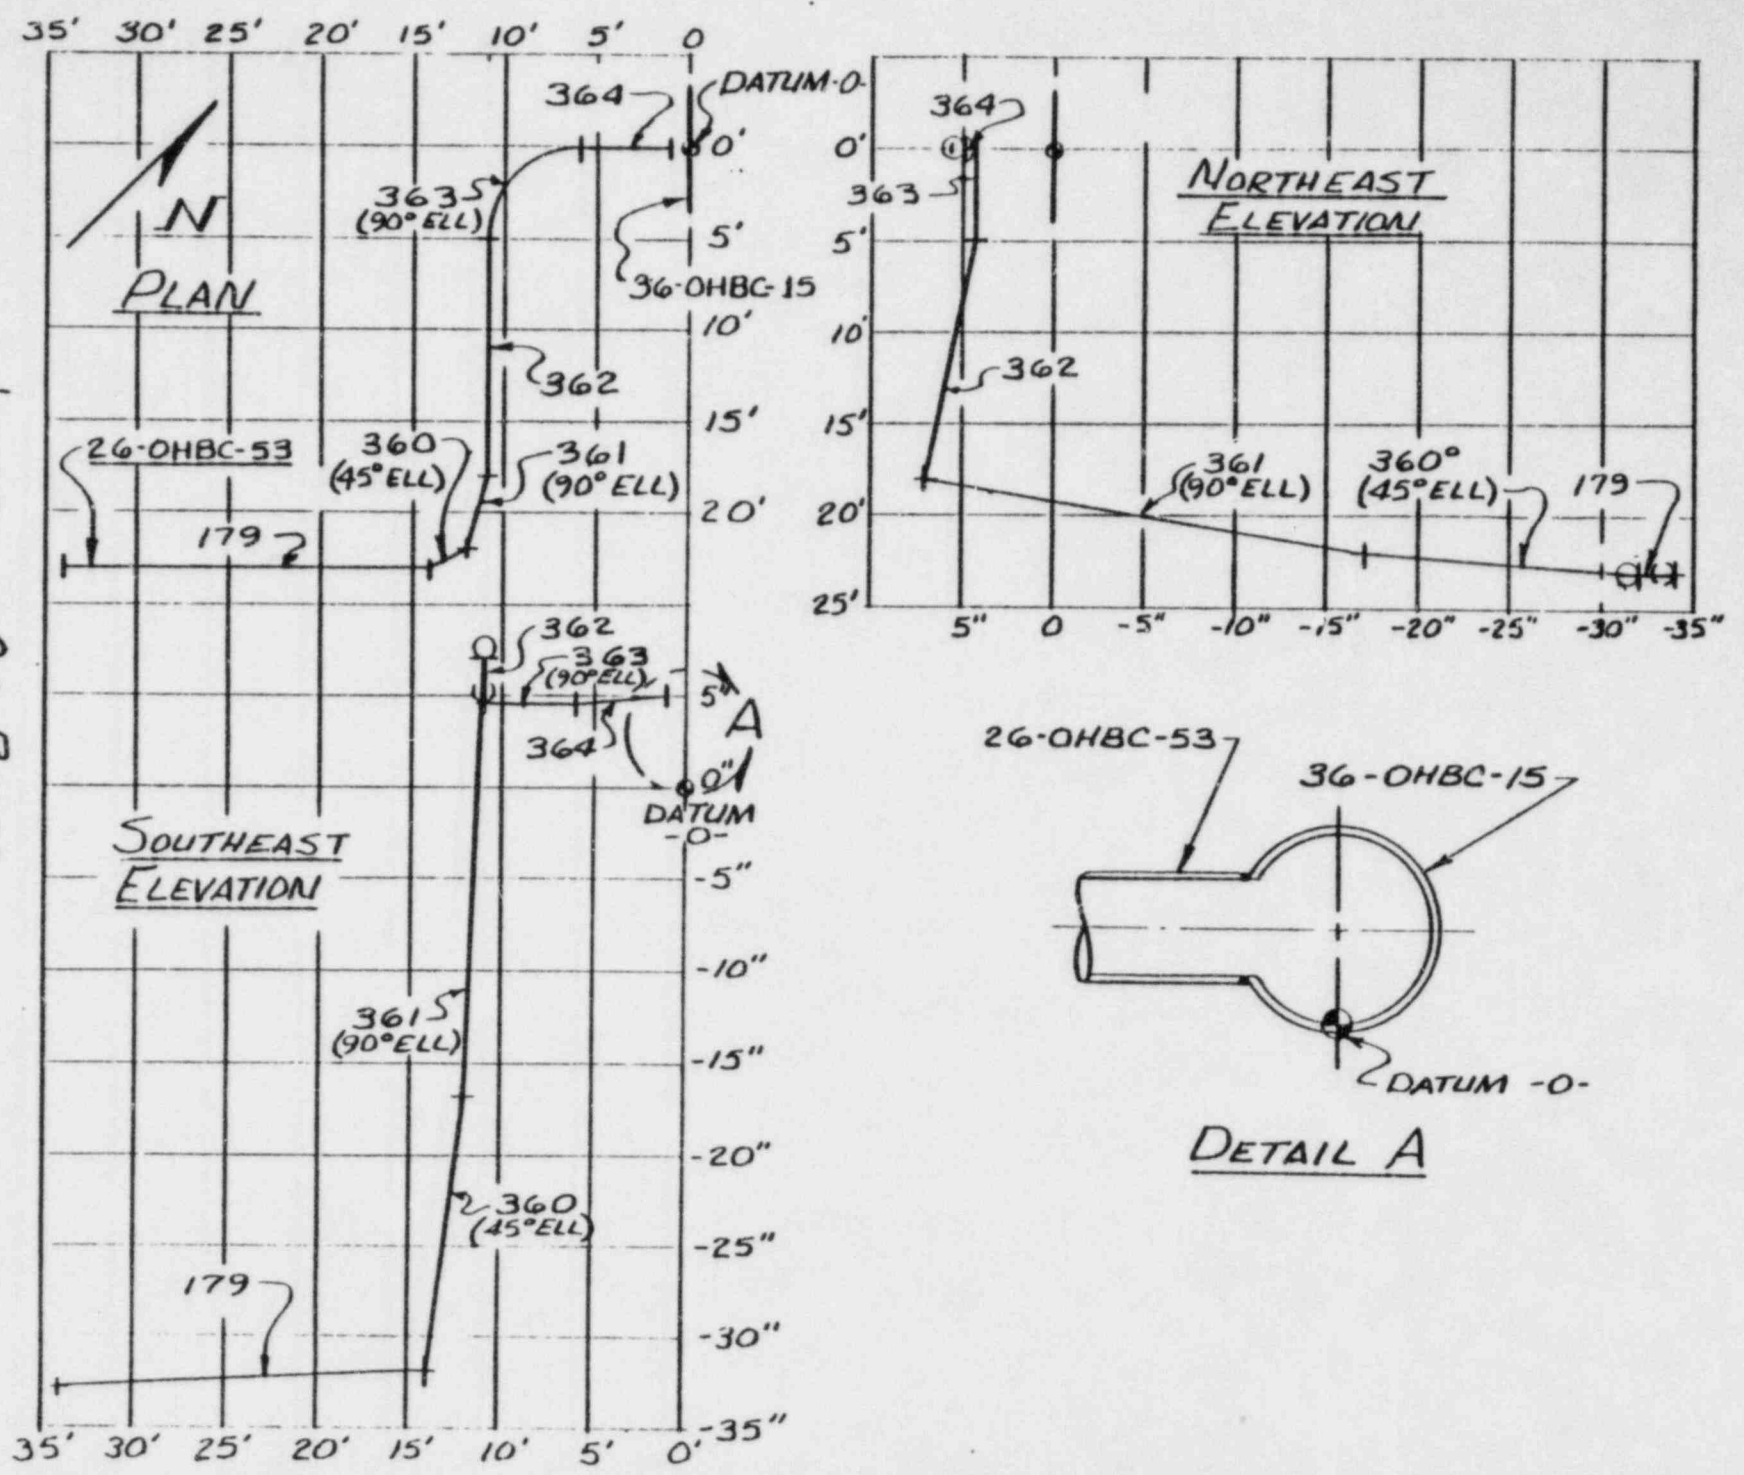 35' 30' 25' 20' 15' 10' 5' 0
364
DATUM-0-
0'
363
(90° ELL)
N
5'
PLAN
36-OHBC-15
10'
362
15'
26-OHBC-53
360
(45° ELL)
361
(90° ELL)
20'
179
362
363
(90° ELL)
5"
A
364
0"
DATUM
-0-
SOUTHEAST
ELEVATION
-5"
-10"
361
(90° ELL)
-15"
-20"
360
(45° ELL)
-25"
179
-30"
-35"
35' 30' 25' 20' 15' 10' 5' 0'
364
0'
363
NORTHEAST
ELEVATION
5'
10'
362
15'
361
(90° ELL)
360°
(45° ELL)
179
20'
25'
5" 0 -5" -10" -15" -20" -25" -30" -35"
26-OHBC-53
36-OHBC-15
DATUM -0-
DETAIL A